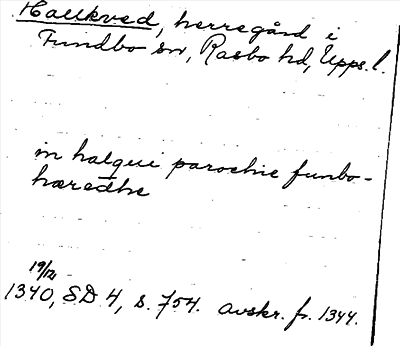 Hallkved, herregård i
Fundbo sn, Rasbo hd, Upps. l.
in halqui parochie funbo-
hæredhe
19/12
1340, SD 4, s. 754. avskr. fr. 1344.